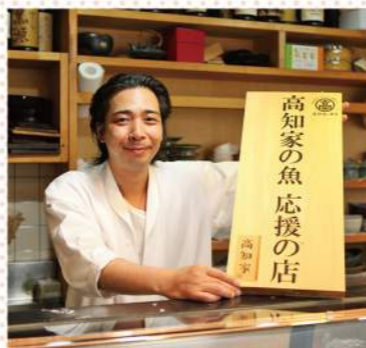 高知家の魚 応援の店
高知家